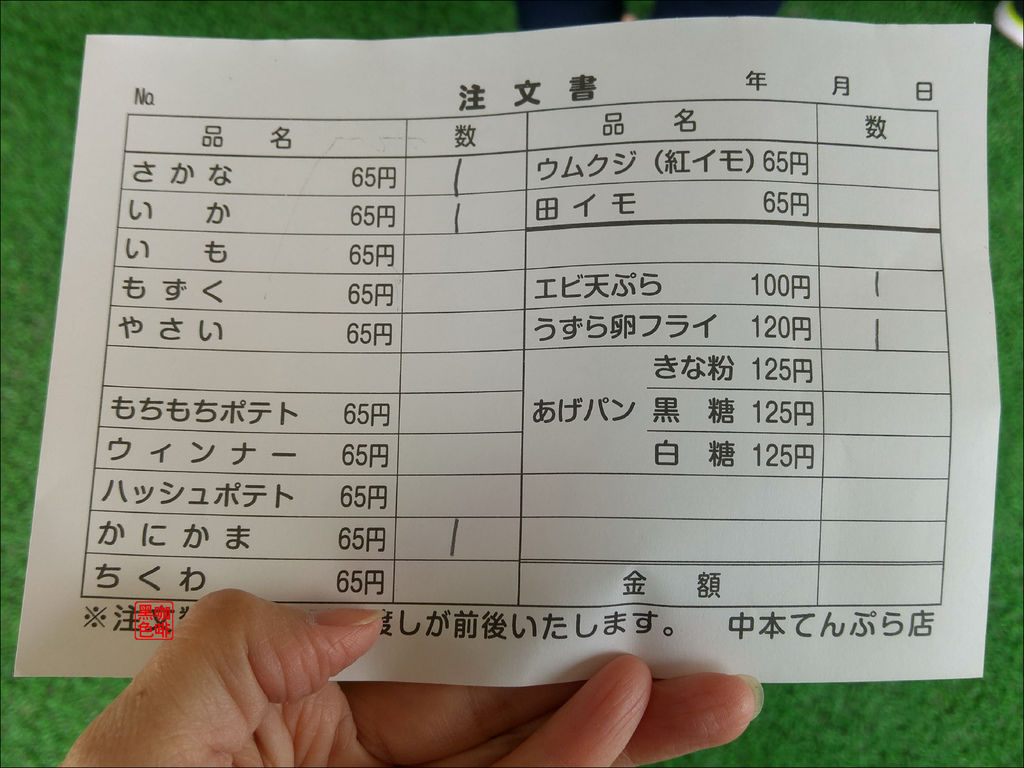 № 注文書 年 月 日
品名 数 品名 数
さかな 65円 | ウムクジ（紅イモ）65円
いか 65円 | 田イモ 65円
いも 65円
もずく 65円 エビ天ぷら 100円 |
やさい 65円 うずら卵フライ 120円 |
きな粉 125円
もちもちポテト 65円 あげパン 黒糖 125円
ウィンナー 65円 白糖 125円
ハッシュポテト 65円
かにかま 65円 |
ちくわ 65円 金額
※注文 渡しが前後いたします。 中本てんぷら店
黑色